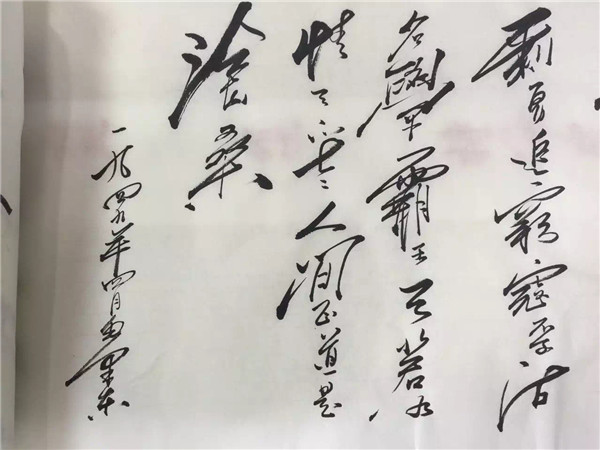 剩勇追窮寇不可沽
名學霸王天若有
情天亦老人間正道是
滄桑
一九四九年四月毛澤東